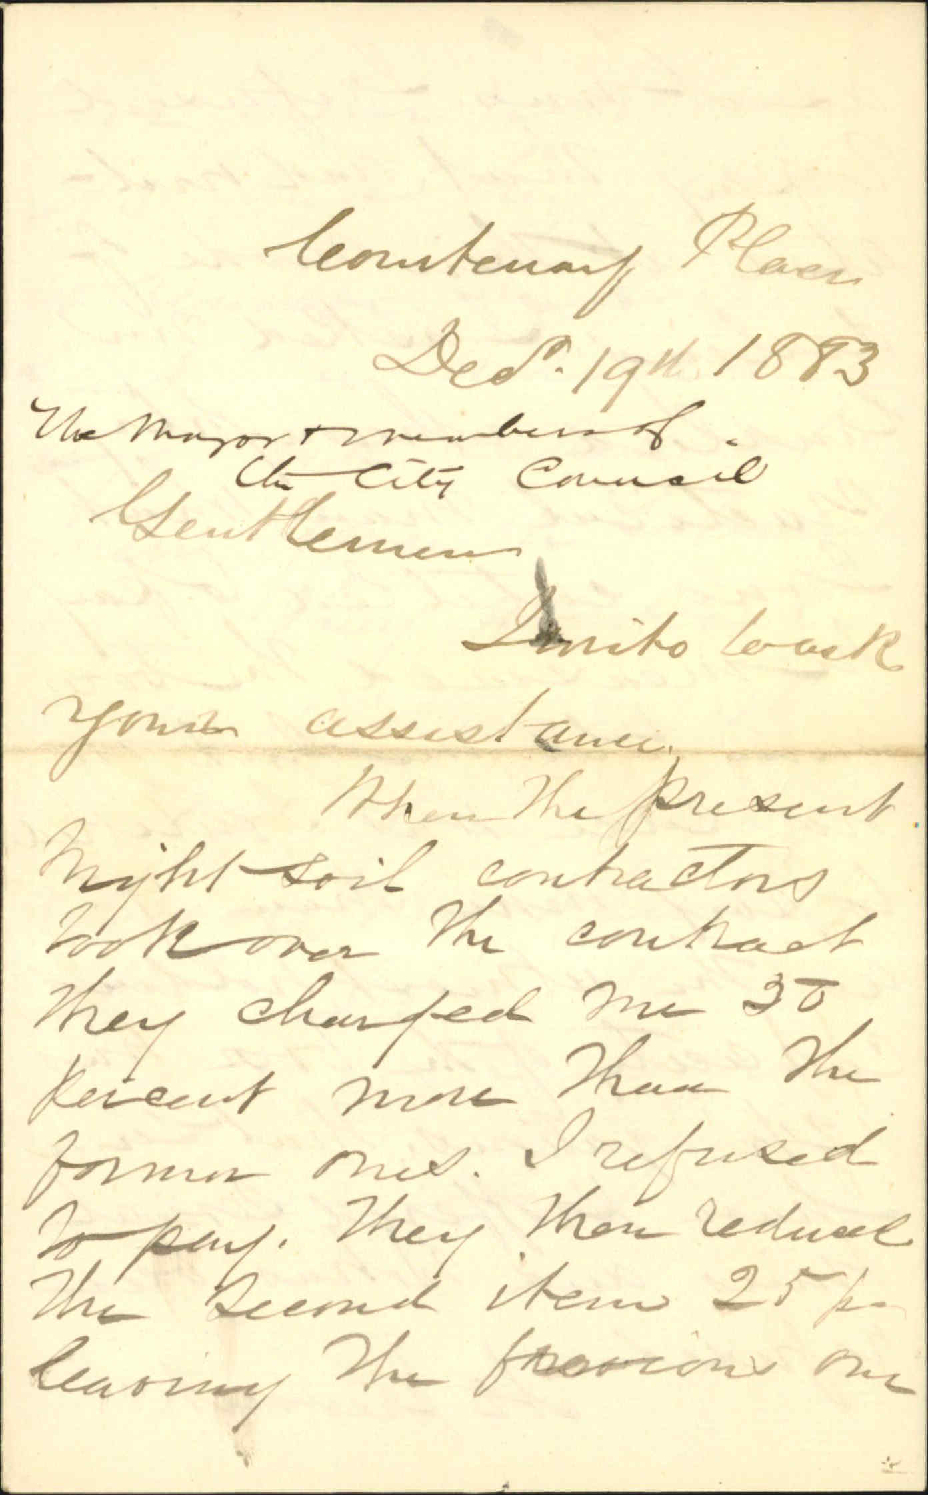 Courtenay Place
Decr. 19th 1883
The Mayor & members of
the City Council
Gentlemen
I write to ask
your assistance.
When the present
Night soil contractors
took over the contract
they charged me 30
percent more than the
former ones. I refused
to pay. They then reduced
the second item 25 pr
leaving the previous one